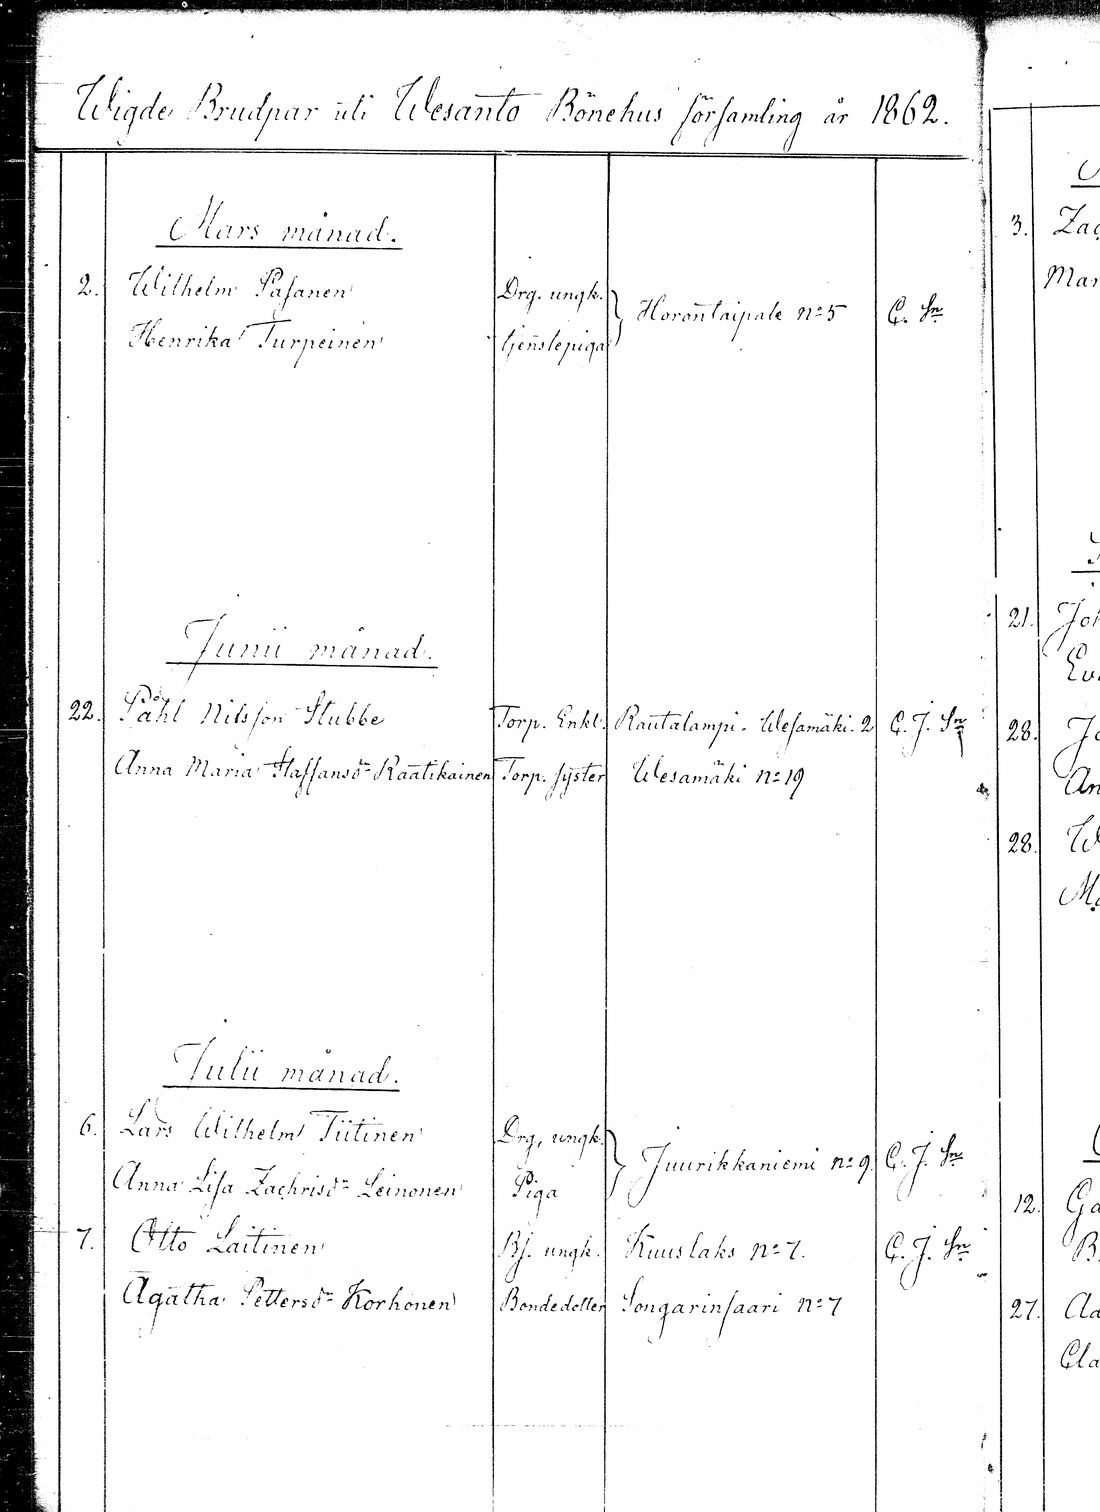 Wigde Brudpar uti Wesanto Bönehus församling år 1862.
Mars månad.
2. Wilhelm Pasanen Drg. ungk. Horontaipale No 5 C. Sn
Henrika Turpeinen tjenstepiga
Junii månad.
22. Påhl Nilsson Stubbe Torp. Enkl. Rautalampi. Wesamäki. 2 C. J. Sn
Anna Maria Staffansdr Raatikainen Torp. syster Wesamäki No 19
Julii månad.
6. Lars Wilhelm Tiitinen Drg. ungk. Juurikkaniemi No 9. C. J. Sn
Anna Lisa Zachrisdr Leinonen Piga
7. Otto Laitinen Bs. ungk. Kuuslaks No 7. C. J. Sn
Agatha Pettersdr Korhonen Bondedotter Songarinsaari No 7
3.
21.
28.
28.
12.
27.